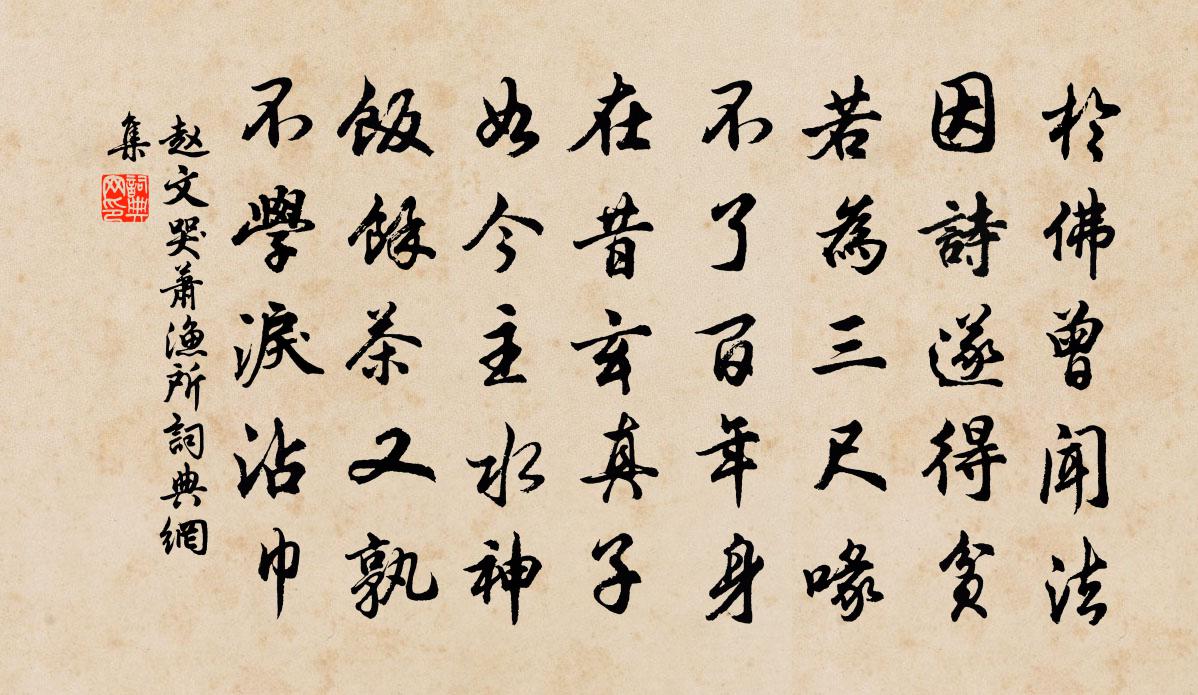 於佛曾聞法
因詩遂得貧
若為三尺喙
不了百年身
在昔玄真子
如今主水神
飯餘茶又孰
不學淚沾巾
赵文哭萧漁所詞典網
集
詞典
网印